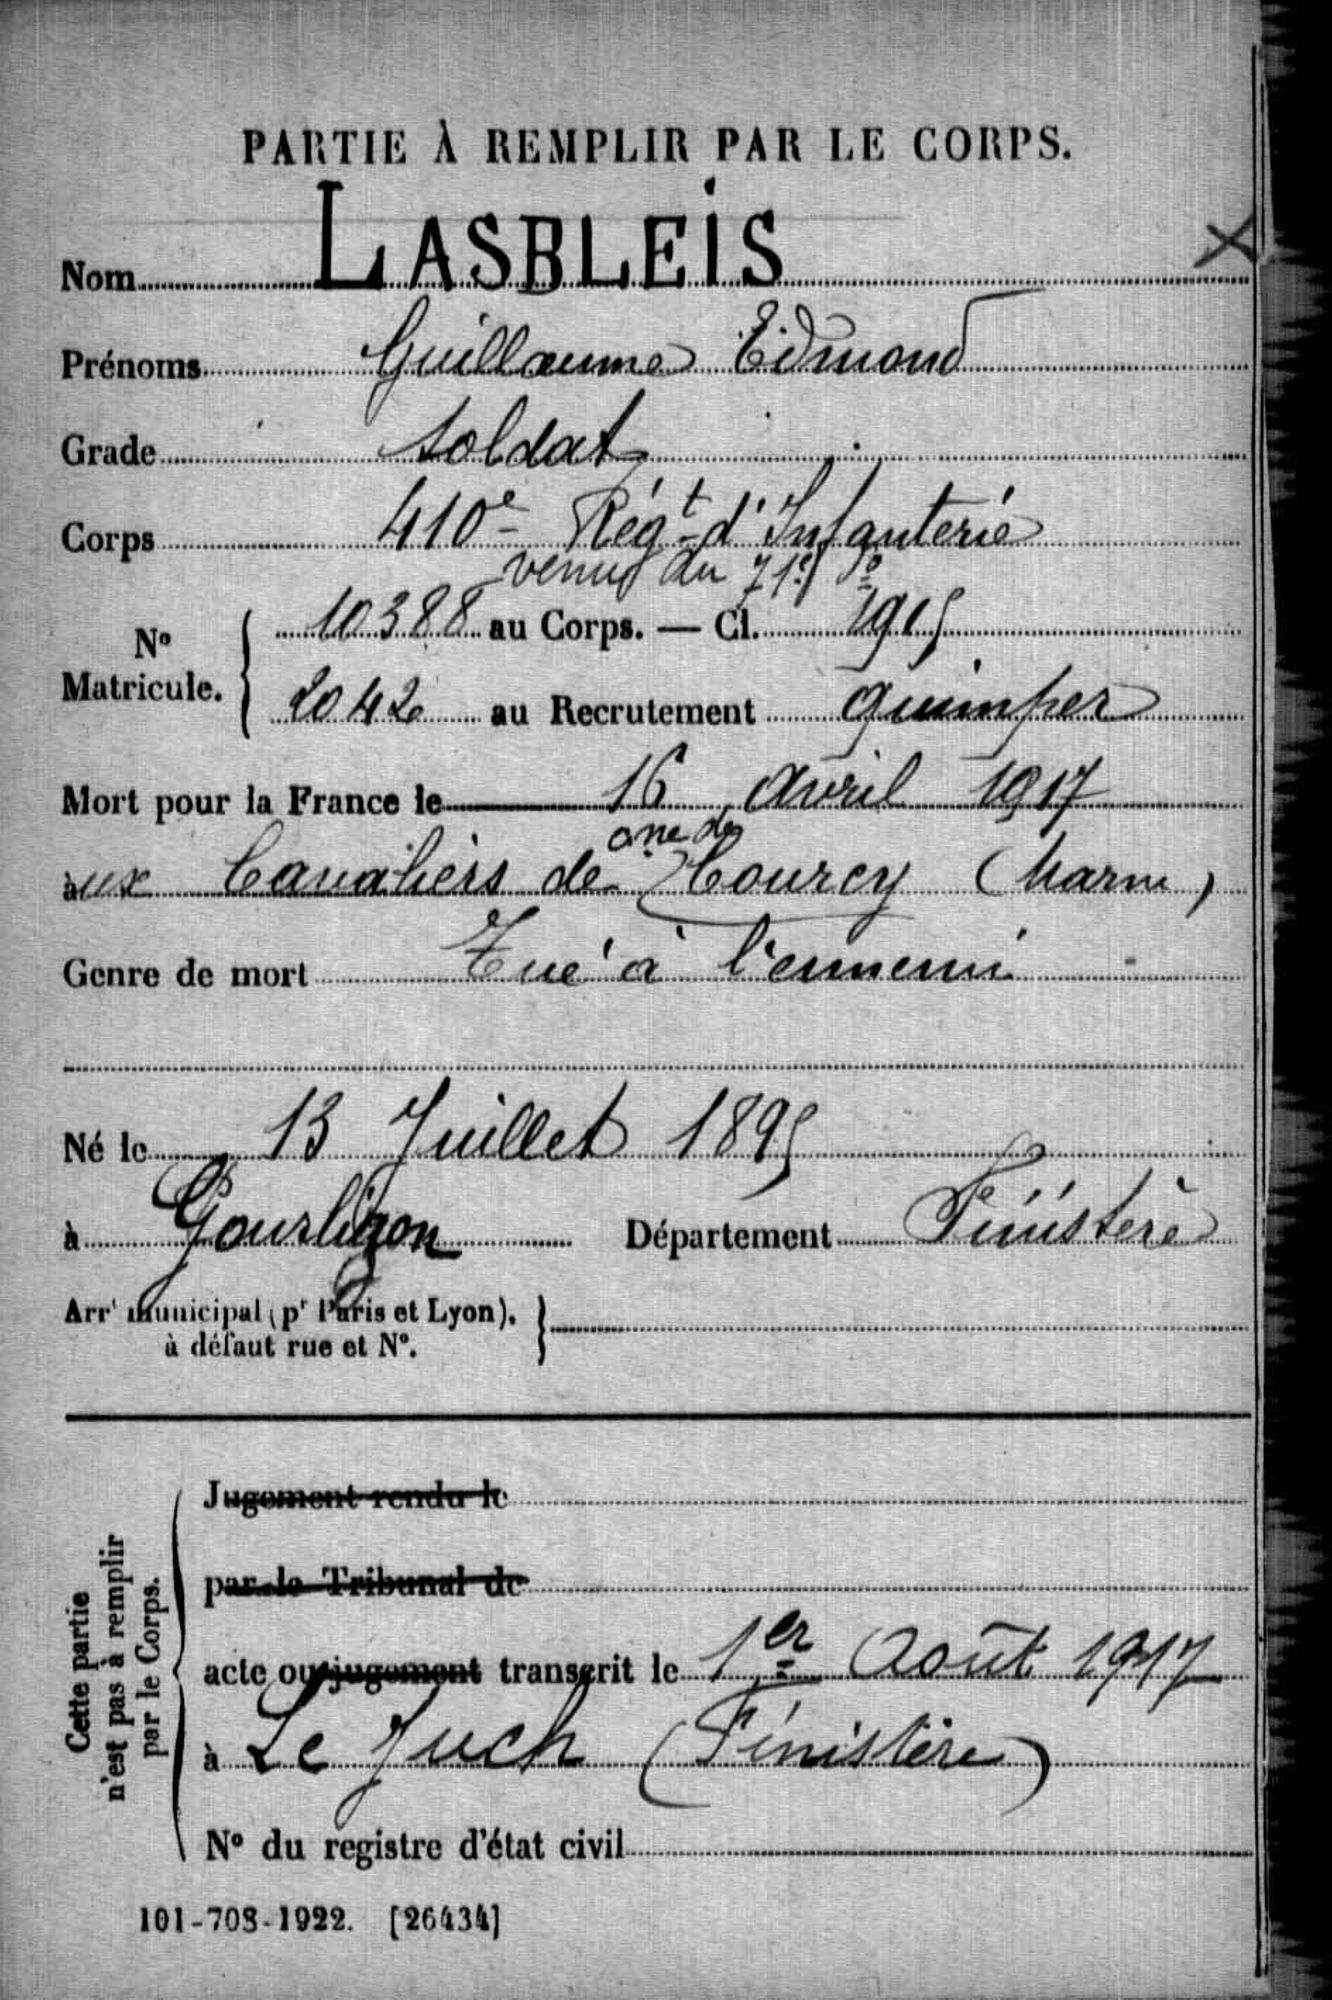 PARTIE À REMPLIR PAR LE CORPS.
Nom LASBLEIS
Prénoms Guillaume Edmond
Grade Soldat
Corps 410e Régt d'Infanterie
venu du 71e do
No Matricule. 10388 au Corps. — Cl. 1915
2042 au Recrutement Quimper
Mort pour la France le 16 Avril 1917
cne de
aux Cavaliers de Courcy (Marne)
Genre de mort Tué à l'ennemi
Né le 13 Juillet 1895
à Gourlizon Département Finistère
Arrt municipal (pr Paris et Lyon),
à défaut rue et No.
Cette partie
n'est pas à remplir
par le Corps.
Jugement rendu le
par le Tribunal de
acte ou jugement transcrit le 1er Août 1917
à Le Juch (Finistère)
No du registre d'état civil
101-708-1922. [26434]